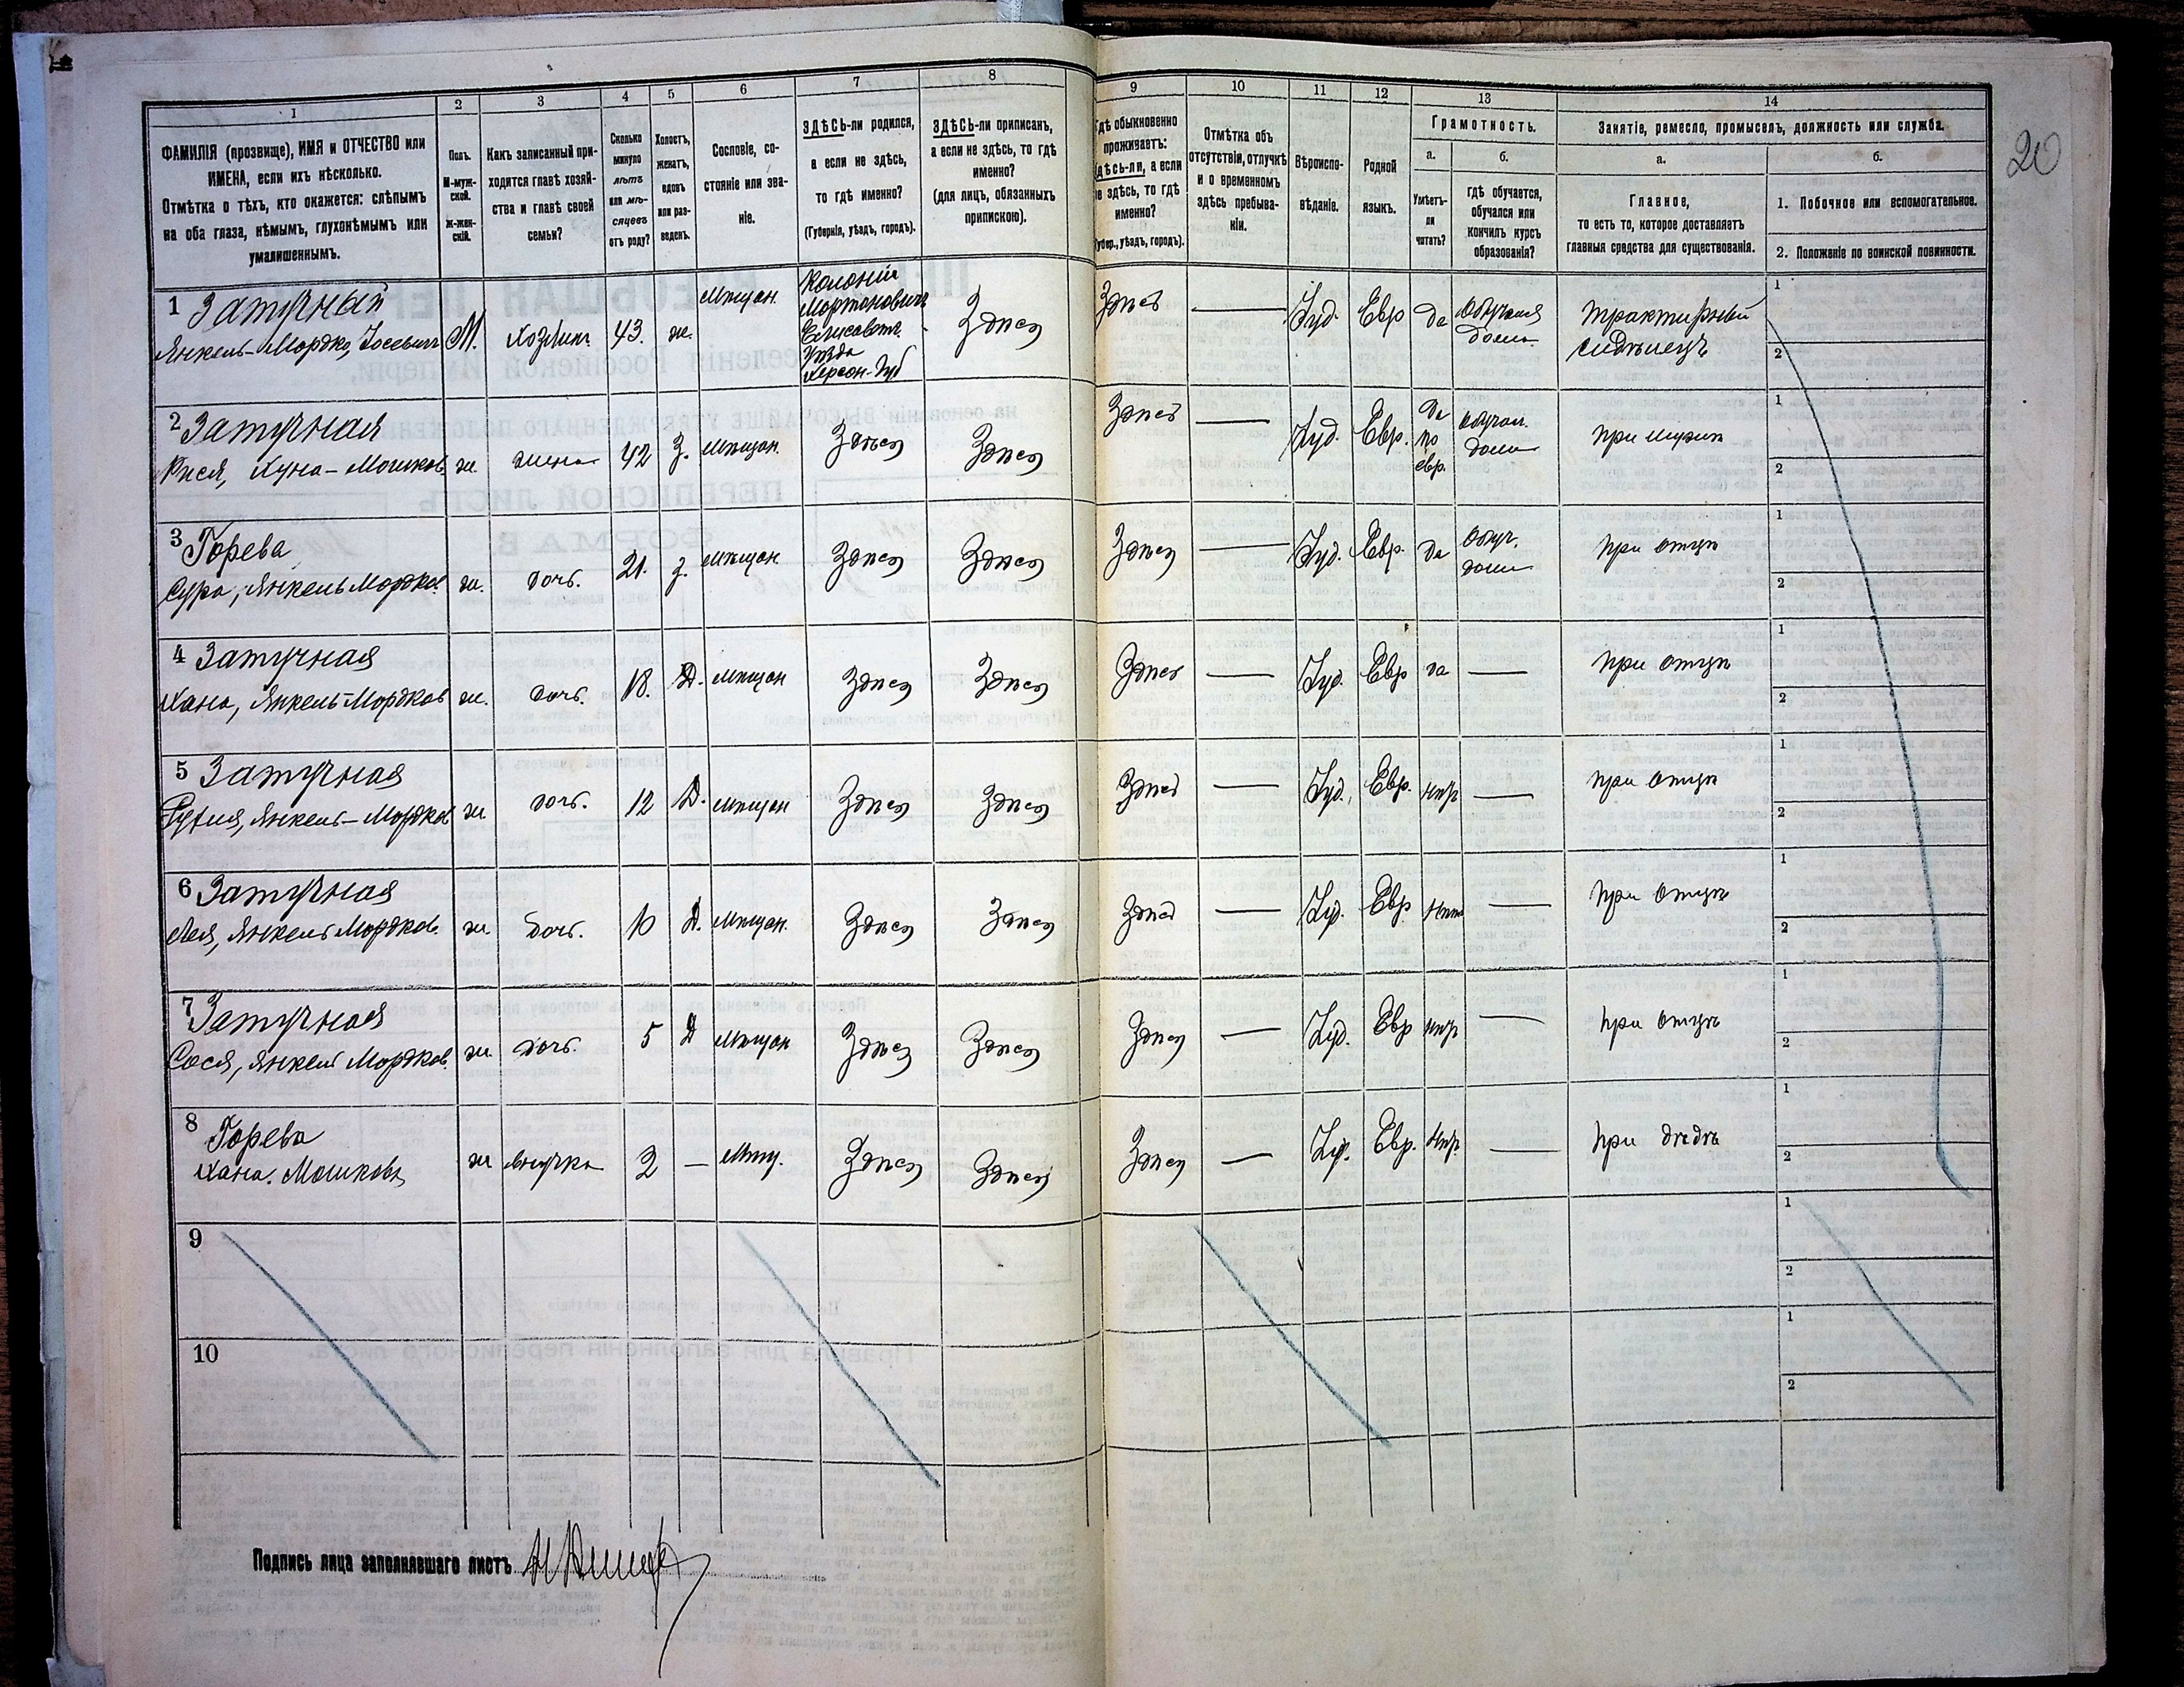 20
1
2
3
4
5
6
7
8
9
10
11
12
13
14
ФАМИЛІЯ (прозвище), ИМЯ и ОТЧЕСТВО или
ИМЕНА, если ихъ нѣсколько.
Отмѣтка о тѣхъ, кто окажется: слѣпымъ
на оба глаза, нѣмымъ, глухонѣмымъ или
умалишеннымъ.
Полъ.
М-муж-
ской.
Ж-жен-
скій.
Какъ записанный при-
ходится главѣ хозяй-
ства и главѣ своей
семьи?
Сколько
минуло
лѣтъ
или мѣ-
сяцевъ
отъ роду?
Холостъ,
женатъ,
вдовъ
или раз-
веденъ.
Сословіе, со-
стояніе или зва-
ніе.
ЗДѢСЬ-ли родился,
а если не здѣсь,
то гдѣ именно?
(Губернія, уѣздъ, городъ).
ЗДѢСЬ-ли приписанъ,
а если не здѣсь, то гдѣ
именно?
(для лицъ, обязанныхъ
припискою).
гдѣ обыкновенно
проживаетъ:
здѣсь-ли, а если
не здѣсь, то гдѣ
именно?
(Губер., уѣздъ, городъ).
Отмѣтка объ
отсутствіи, отлучкѣ
и о временномъ
здѣсь пребыва-
ніи.
Вѣроиспо-
вѣданіе.
Родной
языкъ.
Грамотность.
а.
Умѣетъ-
ли
читать?
б.
гдѣ обучается,
обучался или
кончилъ курсъ
образованія?
Занятіе, ремесло, промыселъ, должность или служба.
а.
Главное,
то есть то, которое доставляетъ
главныя средства для существованія.
б.
1. Побочное или вспомогательное.
2. Положеніе по воинской повинности.
1 Затучный
Янкель-Мордко, Іосевичъ
М. Хозяинъ 43. ж. Мѣщан.
Колоніи
Елисавет.
Уѣзда
Херсон. Губ
Здѣсь
Здѣсь — Іуд. Евр да Обучался
дома
Трактирный
сидѣлецъ
1
2
2 Затучная
Рися, Хуна-Мошков
ж. жена 42 З. мѣщан. Здѣсь Здѣсь
Здѣсь — Іуд. Евр. Да
по
евр.
обучал.
дома
при мужѣ
1
2
3 Горева
Сура, Янкель Мордков.
ж. дочь. 21. З. мѣщан. Здѣсь Здѣсь
Здѣсь — Іуд. Евр. Да Обуч.
дома
при отцѣ
1
2
4 Затучная
Хана, Янкель-Мордков
ж. дочь. 18. Д. мѣщан Здѣсь Здѣсь
Здѣсь — Іуд. Евр да — при отцѣ
1
2
5 Затучная
Янкель-Мордков
ж дочь. 12 Д. мѣщан Здѣсь Здѣсь
Здѣсь — Іуд. Евр. — при отцѣ
1
2
6 Затучная
Лея, Янкель Мордков.
ж. дочь. 10 Д. мѣщан. Здѣсь Здѣсь
Здѣсь — Іуд. Евр. нѣтъ — при отцѣ
1
2
7 Затучная
Сося, Янкель Мордков.
ж. дочь. 5 Д мѣщан Здѣсь Здѣсь
Здѣсь — Іуд. Евр — при отцѣ
1
2
8 Горева
Хана. Мошкова
ж внучка 2 — Мѣщ. Здѣсь Здѣсь
Здѣсь — Іуд. Евр. — при дѣдѣ
1
2
9
1
2
10
1
2
Подпись лица заполнявшаго листъ